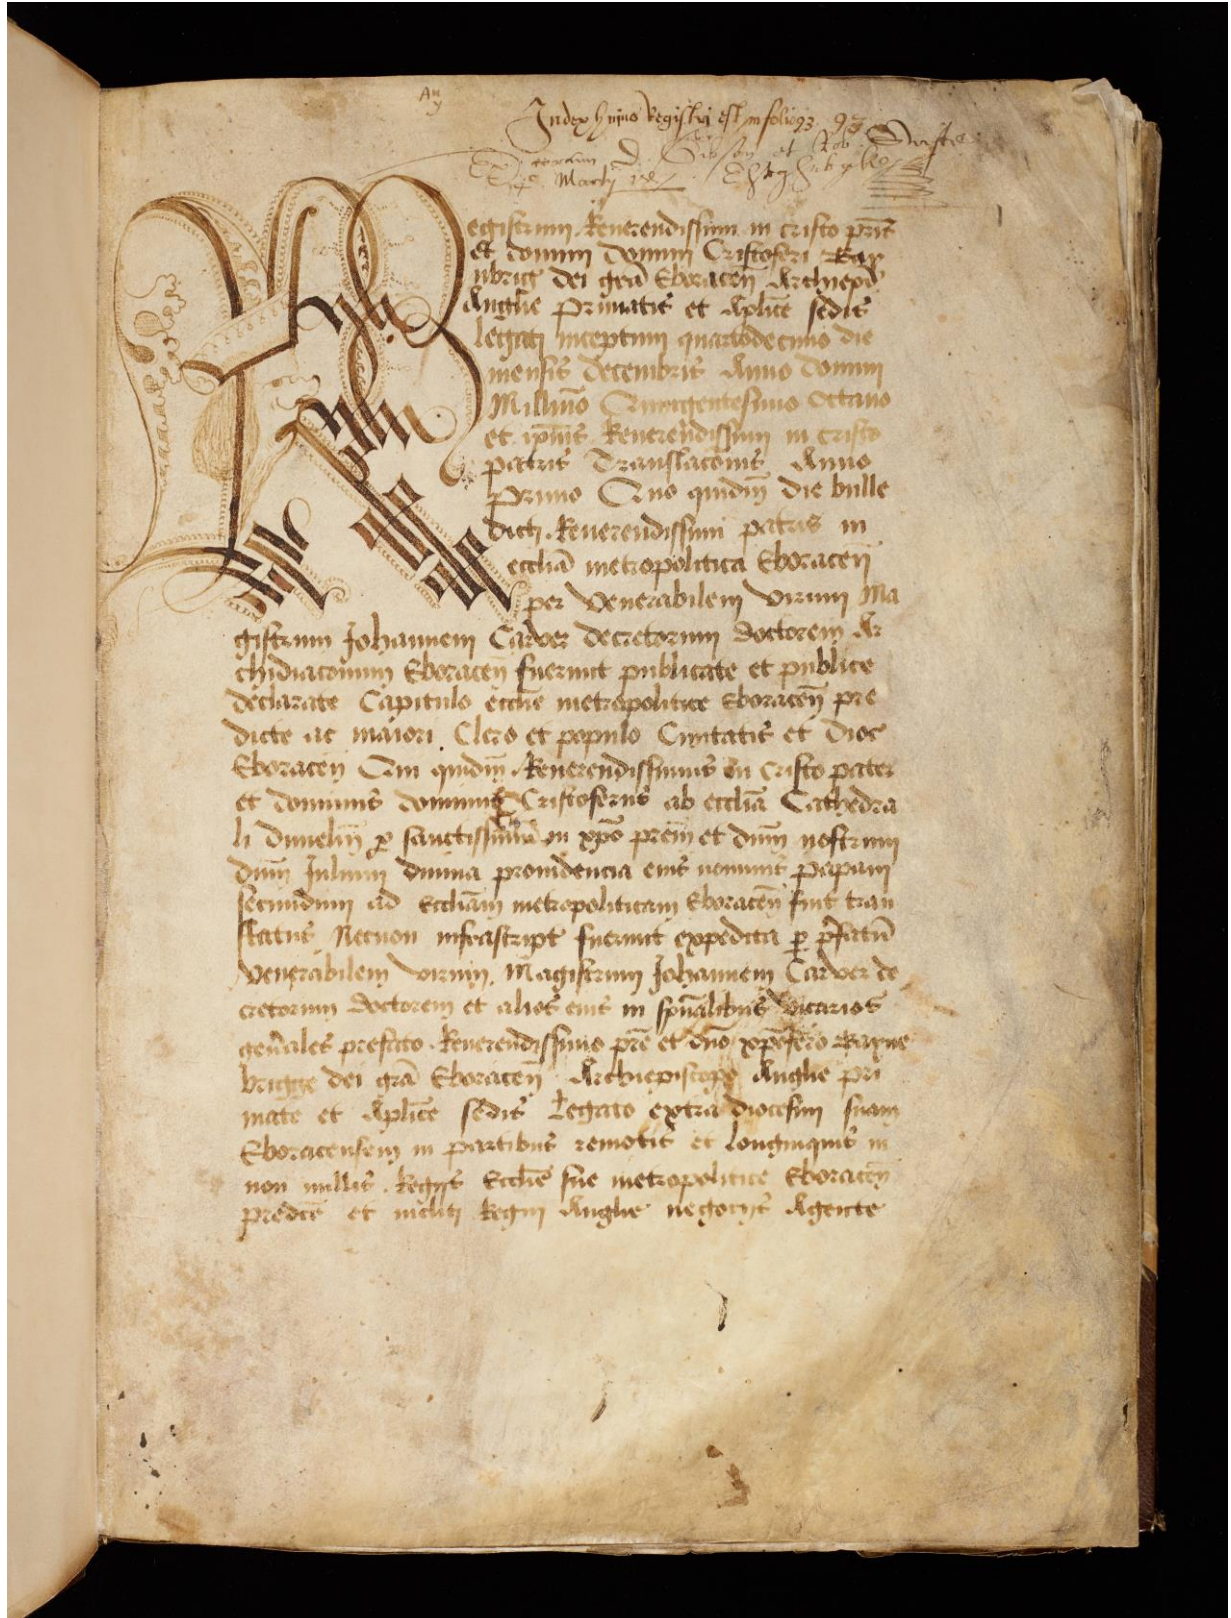 Index huius Registri est in folio 93. 93
Registrum Reverendissimi in cristo pris̄
et domini domini Cristoferi Bay
nbrig dei grā Eboraceñ Archiepī
Anglie Primatis et Aplice sedis
legati inceptum quartodecimo die
mensis decembris Anno domini
Millīmo Quingentesimo Octavo
et ip̄ius Reverendissimi in cristo
patris Translacōnis Anno
Primo Quo quidm̄ die bulle
dicti Reverendissimi patris in
eccliā metropolitica Eboraceñ
per Venerabilem virum Ma
gistrum Johannem Carver decretorum doctorem Ar
chidiaconum Eboraceñ fuerunt publicate et publice
declarate Capitulo ecclie metropolitice Eboraceñ pre
dicte ac maiori Clero et populo Civitatis et dioc
Eboraceñ Qui quidm̄ Reverendissimus in Cristo pater
et dominus dominus Cristoferus ab eccliā Cathedra
li Dunelm̄ p sanctissimū in xp̄o prem̄ et dnm̄ nostrum
dnm̄ Julium divina providencia eius nominis papam
secundum ad Eccliam metropoliticam Eboraceñ fuit tran
slatus Necnon infrascript fuerunt expedita p p̄fatū
Venerabilem virum Magistrum Johannem Carver de
cretorum doctorem et alios eius in sp̄ualibus vicarios
gen̄ales prefato Reverendissimo pr̄e et dn̄o xp̄ofero Bayne
brigge dei grā Eboraceñ Archiepiscopo Anglie pri
mate et Aplice sedis Legato extra diocesim suam
Eboracensem in partibus remotis et longinquis in
non nullis Regijs Ecclie sue metropolitice Eboraceñ
predc̄e et incliti Regni Anglie negocijs Agente